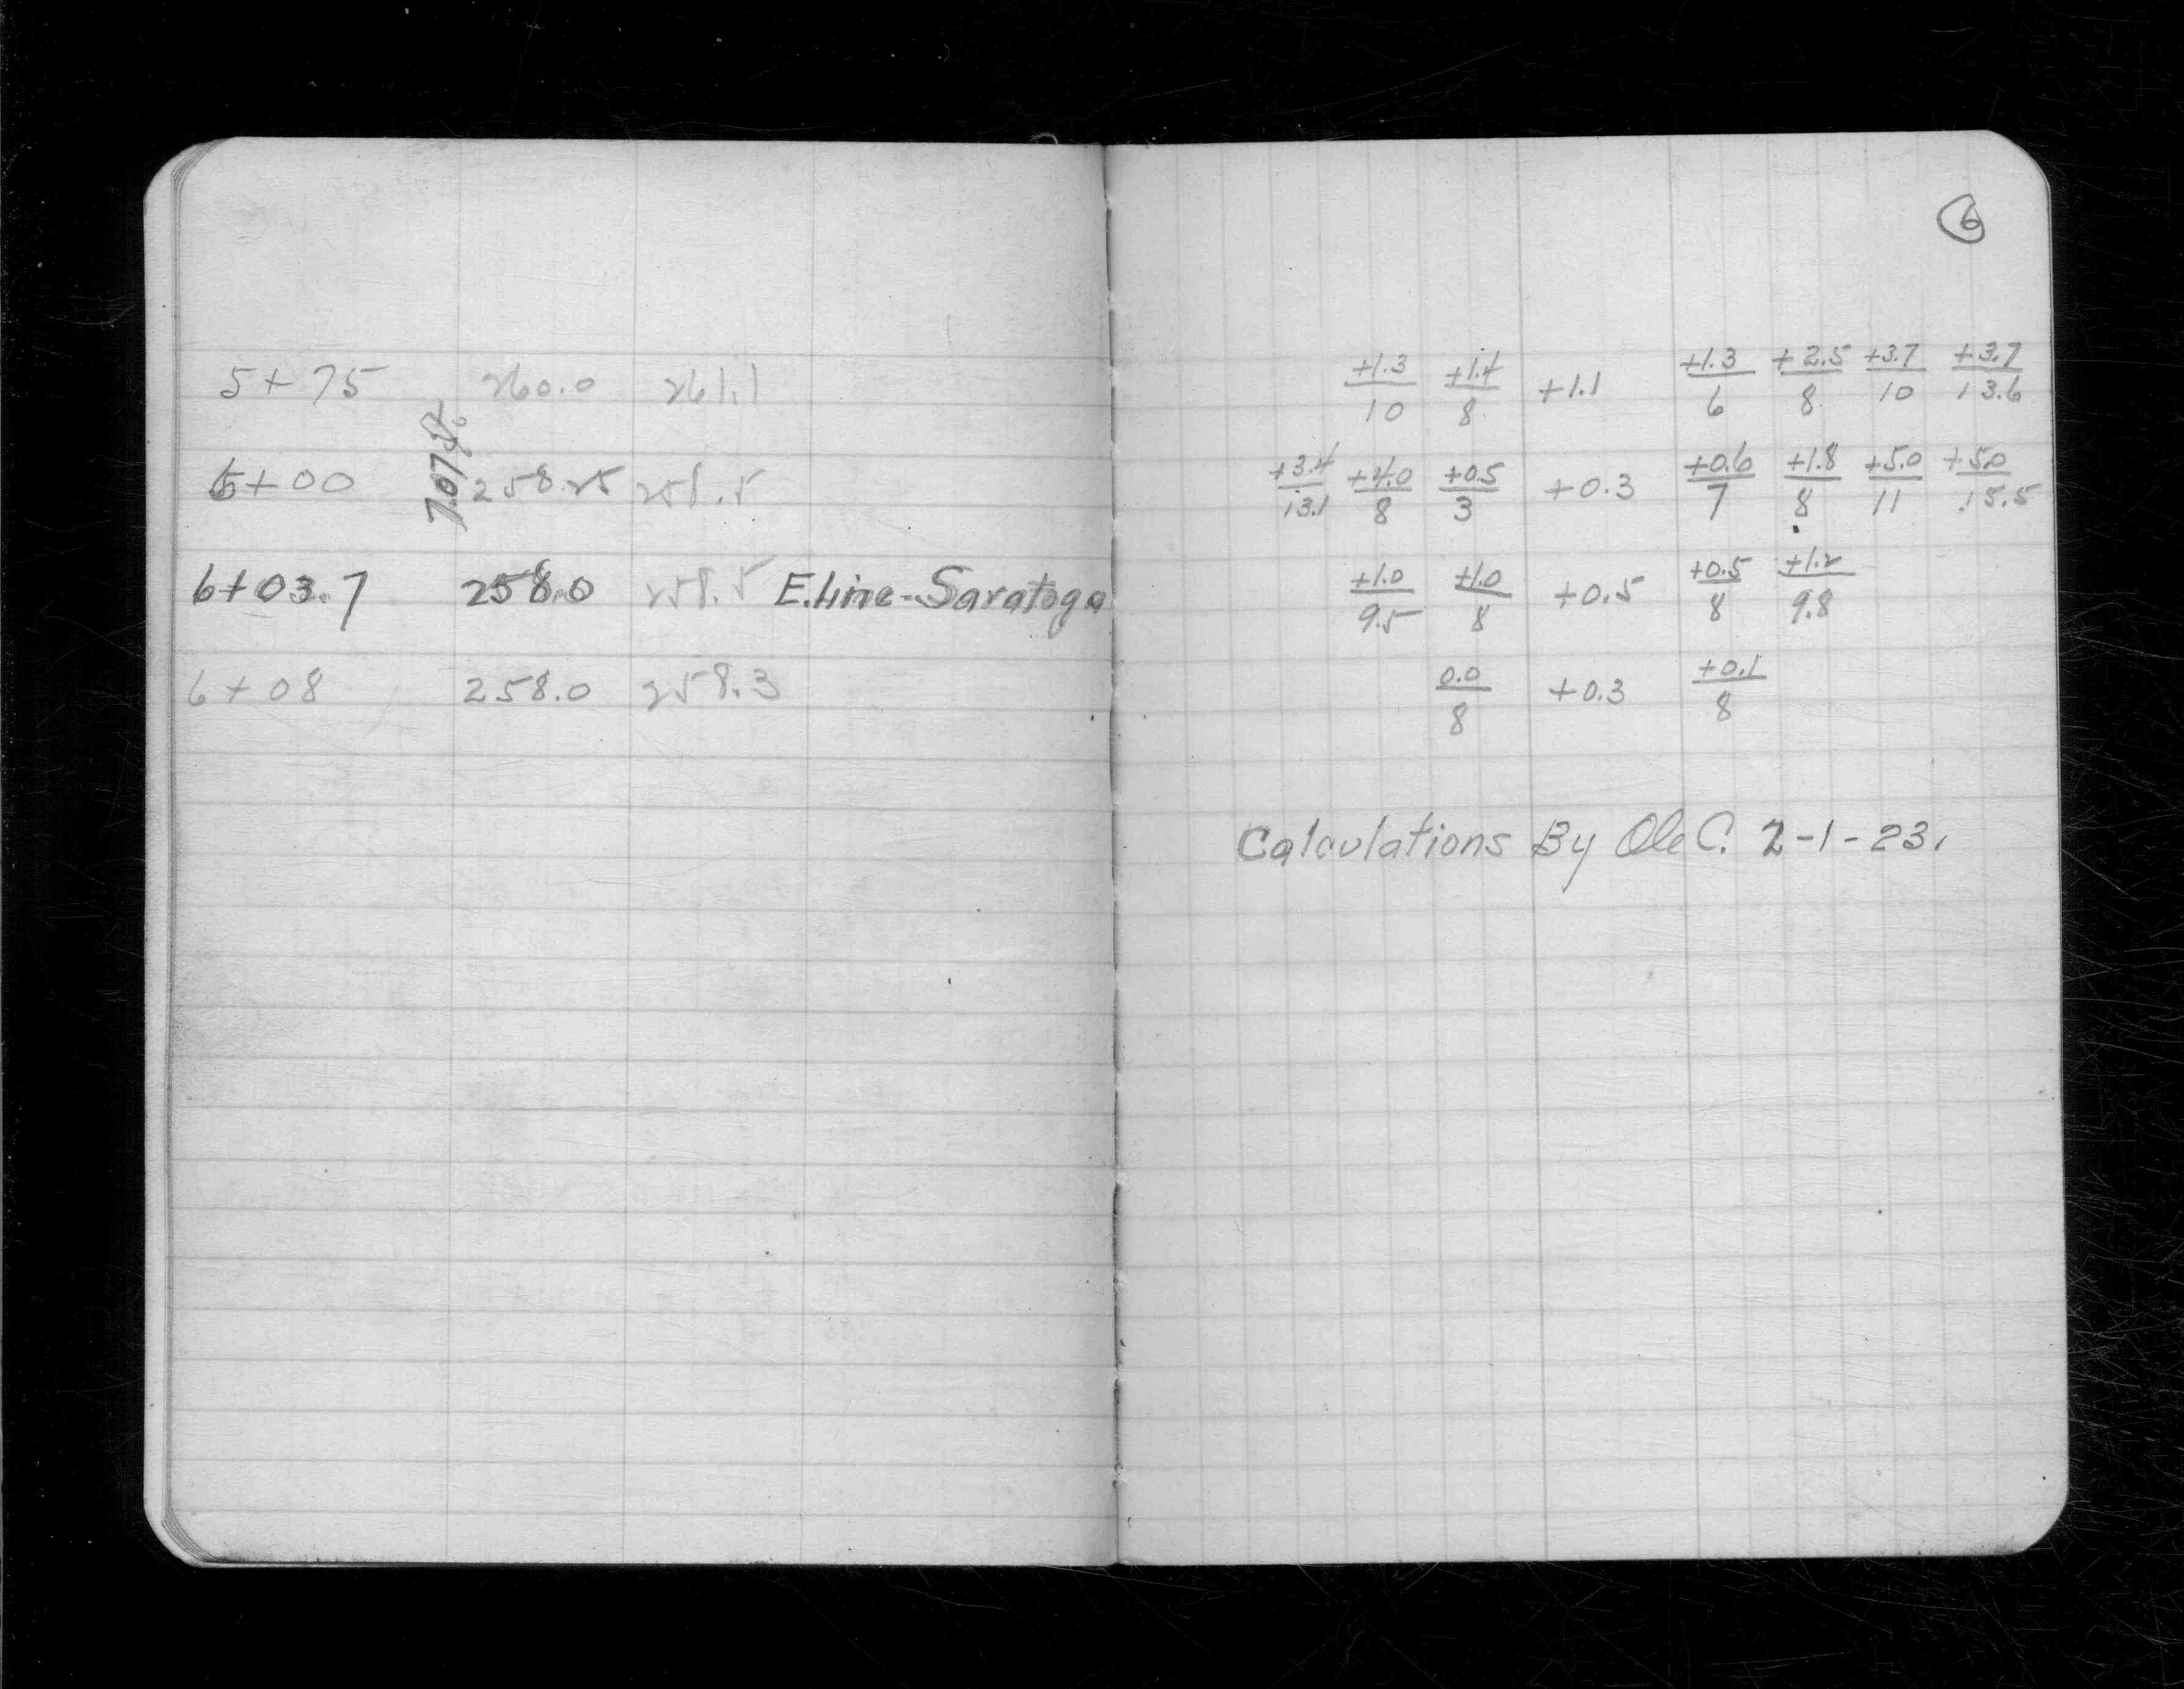 6
5+75 260.0 261.1 +1.3/10 +1.4/8 +1.1 +1.3/6 +2.5/8 +3.7/10 +3.7/13.6
6+00 258.25 258.5 +3.4/13.1 +4.0/8 +0.5/3 +0.3 +0.6/7 +1.8/8 +5.0/11 +5.0/15.5
6+03.7 258.0 258.5 E.line-Saratoga +1.0/9.5 +1.0/8 +0.5 +0.5/8 +1.2/9.8
6+08 258.0 258.3 0.0/8 +0.3 +0.1/8
Calculations By Ole C. 2-1-23.